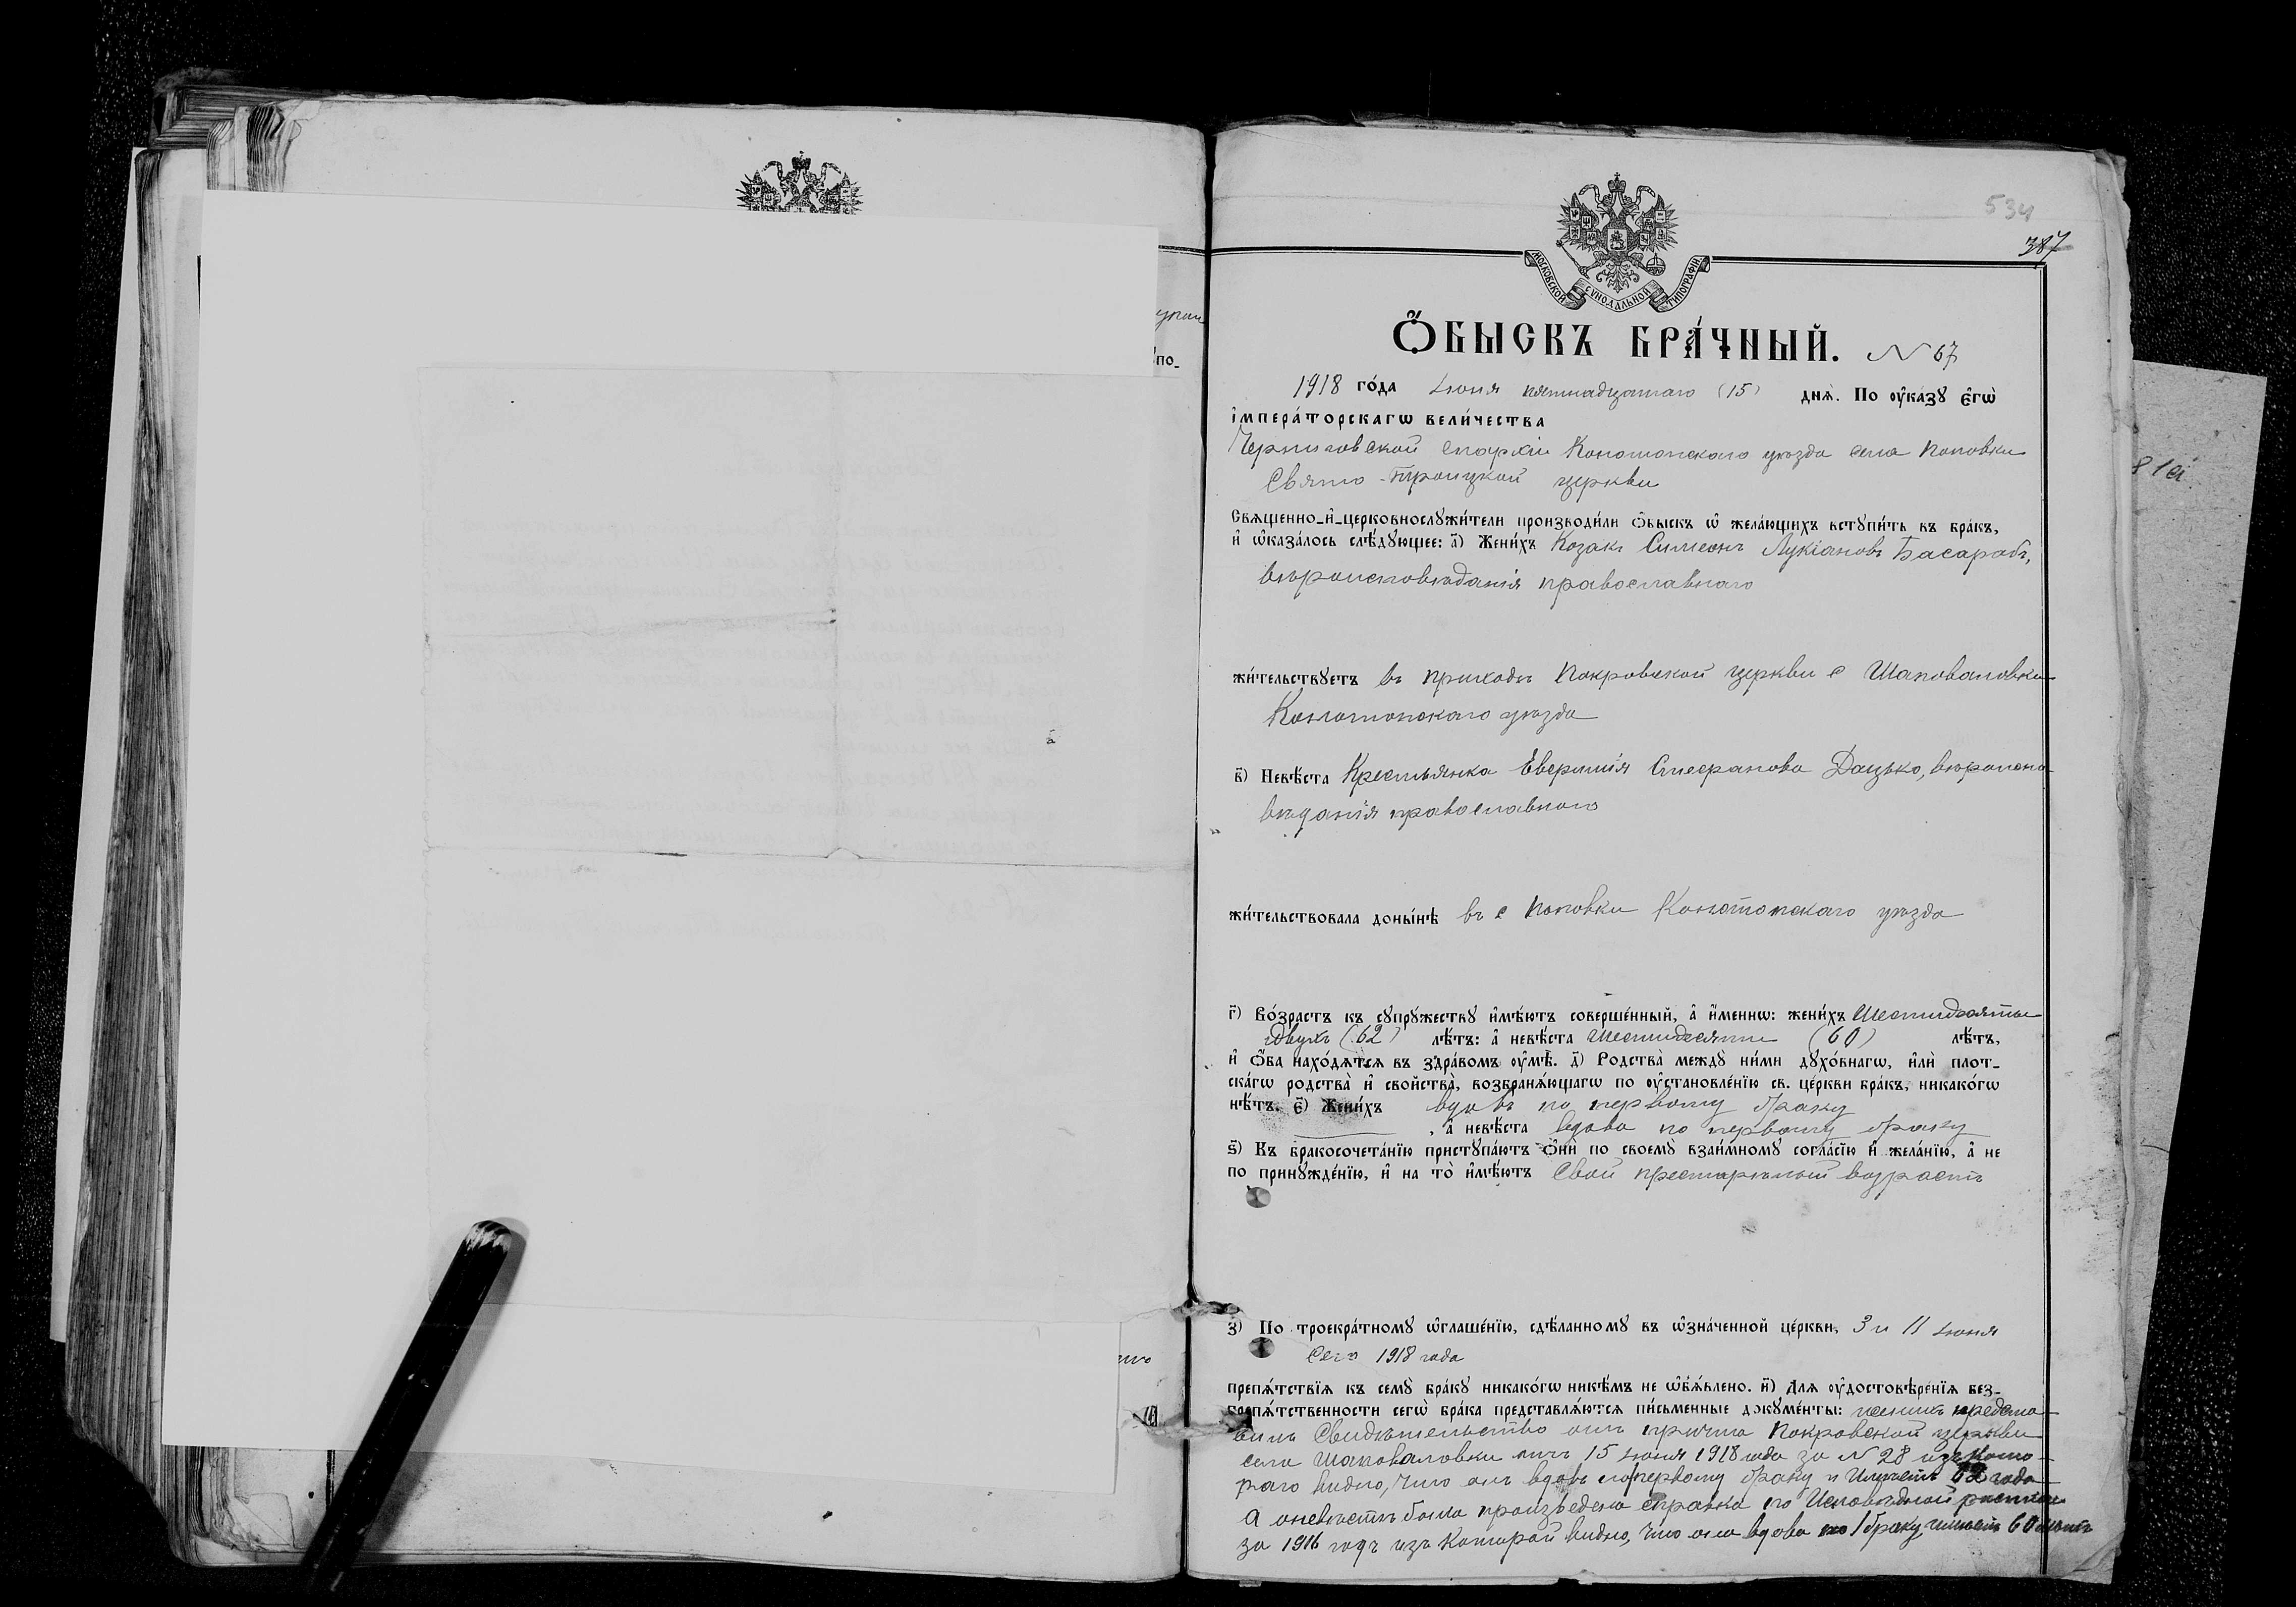 упои
по-
534
387
МОСКОВСКОЙ СѴНОДАЛЬНОЙ ТИПОГРАФІИ
Ѻ҆БЫСКЪ БРА́ЧНЫЙ. N 67
1918 го́да Іюня пятнадцатаго (15) днѧ̀. По ᲂу҆ка́зꙋ є҆гѡ̀
і҆мпера́торскагѡ вели́чества
Черниговской епархіи Конотопскаго уѣзда села Поповки
Свято-Троицкой церкви
Свѧщенно-и҆-церковнослꙋжи́тели производи́ли ѻ҆́быскъ ѡ҆ жела́ющихъ встꙋпи́ть въ бра́къ,
и҆ ѡ҆каза́лось слѣ́дꙋющее: а҃) Жени́хъ Козакъ Симеонъ Лукіановъ Басарабъ,
вѣроисповѣданія православнаго
жи́тельствꙋетъ въ приходѣ Покровской церкви с Шаповаловки
Конотопскаго уѣзда
в҃) Невѣ́ста Крестьянка Евфимія Стефанова Дацько, вѣроиспо-
вѣданія православнаго
жи́тельствовала доны́нѣ въ с Поповки Конотопскаго уѣзда
г҃) Во́зрастъ къ сꙋпрꙋ́жествꙋ и҆мѣ́ютъ соверше́нный, а҆ и҆́меннѡ: жени́хъ Шестидесяти
двухъ (62) лѣ́тъ: а҆ невѣ́ста Шестидесяти (60) лѣ́тъ,
и҆ ѻ҆́ба нахо́дѧтсѧ въ здра́вомъ ᲂу҆мѣ̀. д҃) Родства̀ междꙋ̀ ни́ми дꙋхо́внагѡ, и҆лѝ плот-
ска́гѡ родства̀ и҆ свойства̀, возбранѧ́ющагѡ по ᲂу҆становле́нїю св. це́ркви бра́къ, никако́гѡ
нѣ́тъ. є҃) Жени́хъ вдовъ по первому браку
, а҆ невѣ́ста вдова по первому браку
ѕ҃) Къ бракосочета́нїю пристꙋпа́ютъ ѻ҆нѝ по своемꙋ̀ взаи́мномꙋ согла́сїю и҆ жела́нїю, а҆ не
по принꙋжде́нїю, и҆ на то̀ и҆мѣ́ютъ Свой престарѣлый возрастъ
з҃) По троекра́тномꙋ ѡ҆глаше́нїю, сдѣ́ланномꙋ въ ѡ҆зна́ченной це́ркви, 3 и 11 Іюня
Сего 1918 года
препѧ́тствїѧ къ семꙋ̀ бра́кꙋ никако́гѡ никѣ́мъ не ѡ҆б̾ѧ́влено. и҃) Для ᲂу҆достовѣре́нїѧ без-
препѧ́тственности сегѡ̀ бра́ка представлѧ́ютсѧ пи́сьменные докꙋме́нты: женихъ предста-
вилъ Свидѣтельство отъ причта Покровской церкви
села Шаповаловки отъ 15 Іюня 1918 года за N 28 изъ кото-
раго видно, что онъ вдовъ по первому браку и Имѣетъ 62 года
А о невѣстѣ была произведена справка по Исповѣдной росписи
за 1916 годъ изъ Которой видно, что она вдова по 1 браку, имѣетъ 60 лѣтъ